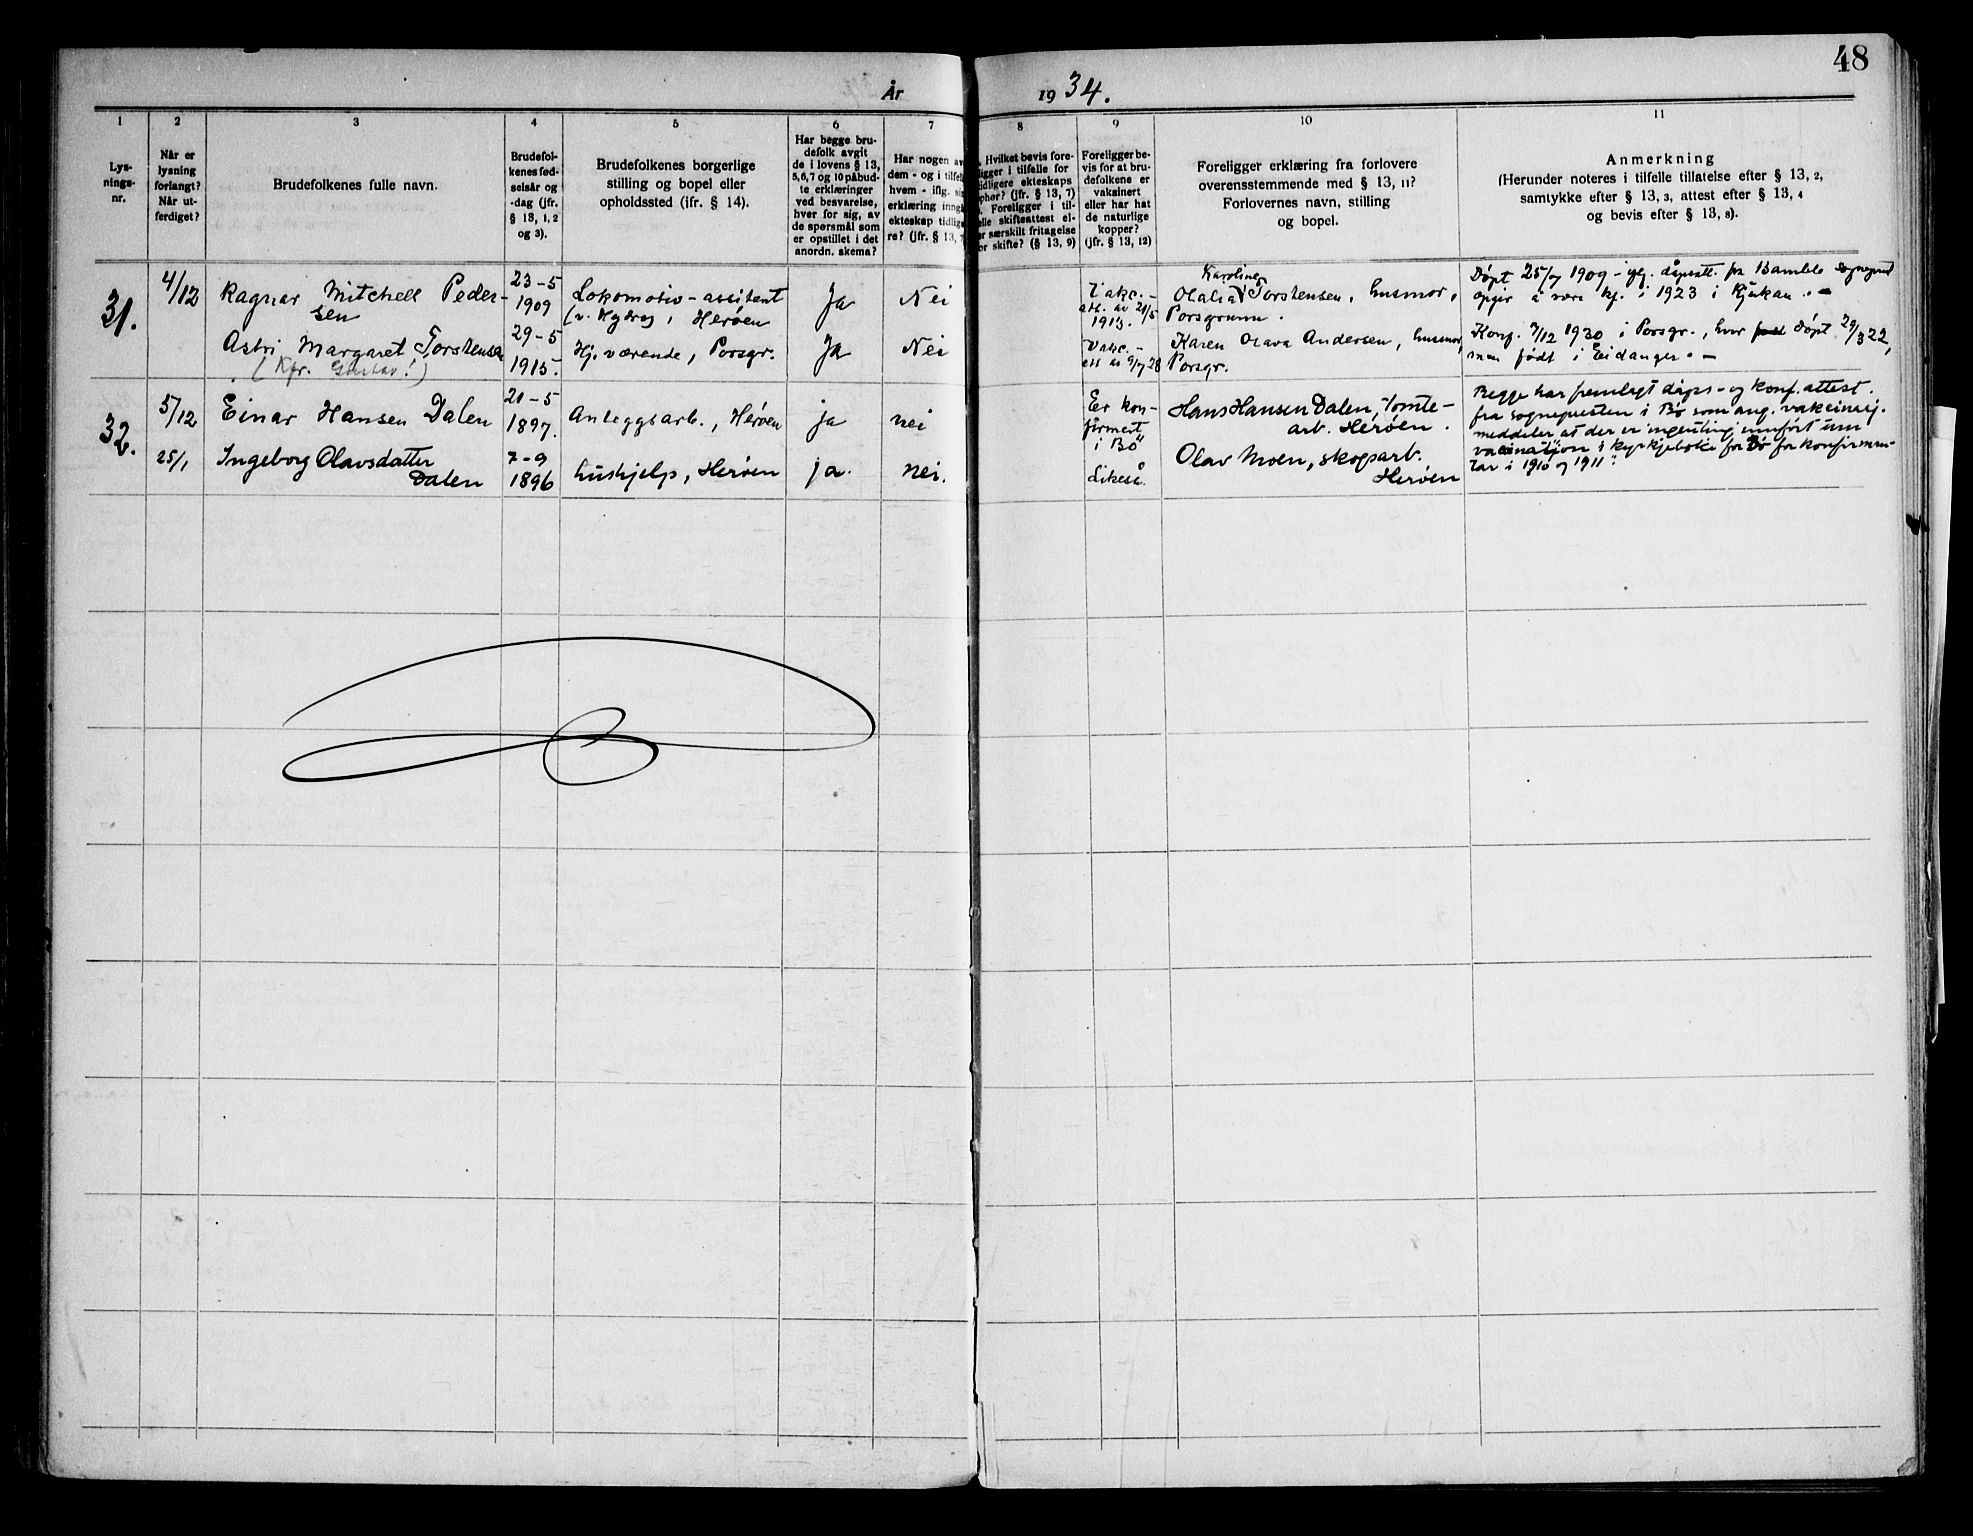 48
År
19 34.
1
Lys-
nings-
nr.
2
Når er
lysning
forlangt?
Når ut-
ferdiget?
3
Brudefolkenes fulle navn.
4
Brudefol-
kenes fød-
selsår og
-dag (jfr.
§ 13, 1, 2
og 3).
5
Brudefolkenes borgerlige
stilling og bopel eller
opholdssted (ifr. § 14).
6
Har begge bru-
defolk avgit
de i lovens § 13,
5, 6, 7 og 10 påbud-
te erklæringer
ved besvarelse,
hver for sig, av
de spørsmål som
er opstillet i det
anordn. skema?
7
Har nogen av
dem - og i tilfelle
hvem - iflg. si
erklæring inngå
ekteskap tidlige
re? (jfr. § 13, 7
8
Hvilket bevis fore-
ligger i tilfelle for
tidligere ekteskaps
ophør? (jfr. § 13, 7)
Foreligger i til-
elle skifteattest el-
er særskilt fritagelse
or skifte? (§ 13, 9)
9
Foreligger be-
vis for at bru-
defolkene er
vaksinert
eller har hat
de naturlige
kopper?
(jfr. § 13, 12)
10
Foreligger erklæring fra forlovere
overensstemmende med § 13, 11?
Forlovernes navn, stilling
og bopel.
11
Anmerkning
(Herunder noteres i tilfelle tillatelse efter § 13, 2,
samtykke efter § 13, 3, attest efter § 13, 4
og bevis efter § 13, 8).
31.
4/12
Ragnar Mitchell Peder-
sen
23-5
1909
Lokomotiv-assitent
(v. Hydro), Herøen
Ja
Nei
Vakc.-
att. av 21/5
1913.
Karoline
Olalia Torstensen, husmor,
Porsgrunn.
Døpt 25/7 1909 - iflg. dåpsatt. fra Bamble sogneprest
opgir å være kf. i 1923 i Rjukan. -
Astri Margaret Torstensen
(Kfr. Gustav!)
29-5
1915.
Hj. værende, Porsgr.
Ja
Nei
Vakc.-
att av 9/7 28
Karen Olava Andersen, husmor,
Porsgr.
Konf. 7/12 1930 i Porsgr., hvor døpt 29/3 22,
men født i Eidanger. -
32.
5/12
Einar Hansen Dalen
21-5
1897.
Anleggsarb., Herøen
ja
nei
Er kon-
firmert
i Bö
Hans Hansen Dalen, tomte-
arb. Herøen.
Begge har fremlagt dåps- og konf. attest.
fra sognepresten i Bø som ang. vakcinasj.
meddeler at der er "ingenting innført um
vacinasjon i kyrkjeboki for Bø for konfirman-
tar i 1910 og 1911".
25/1
Ingeborg Olavsdatter
Dalen
7-9
1896
hushjelp, Herøen
ja.
nei.
Likeså.
Olav Moen, skogsarb.
Herøen